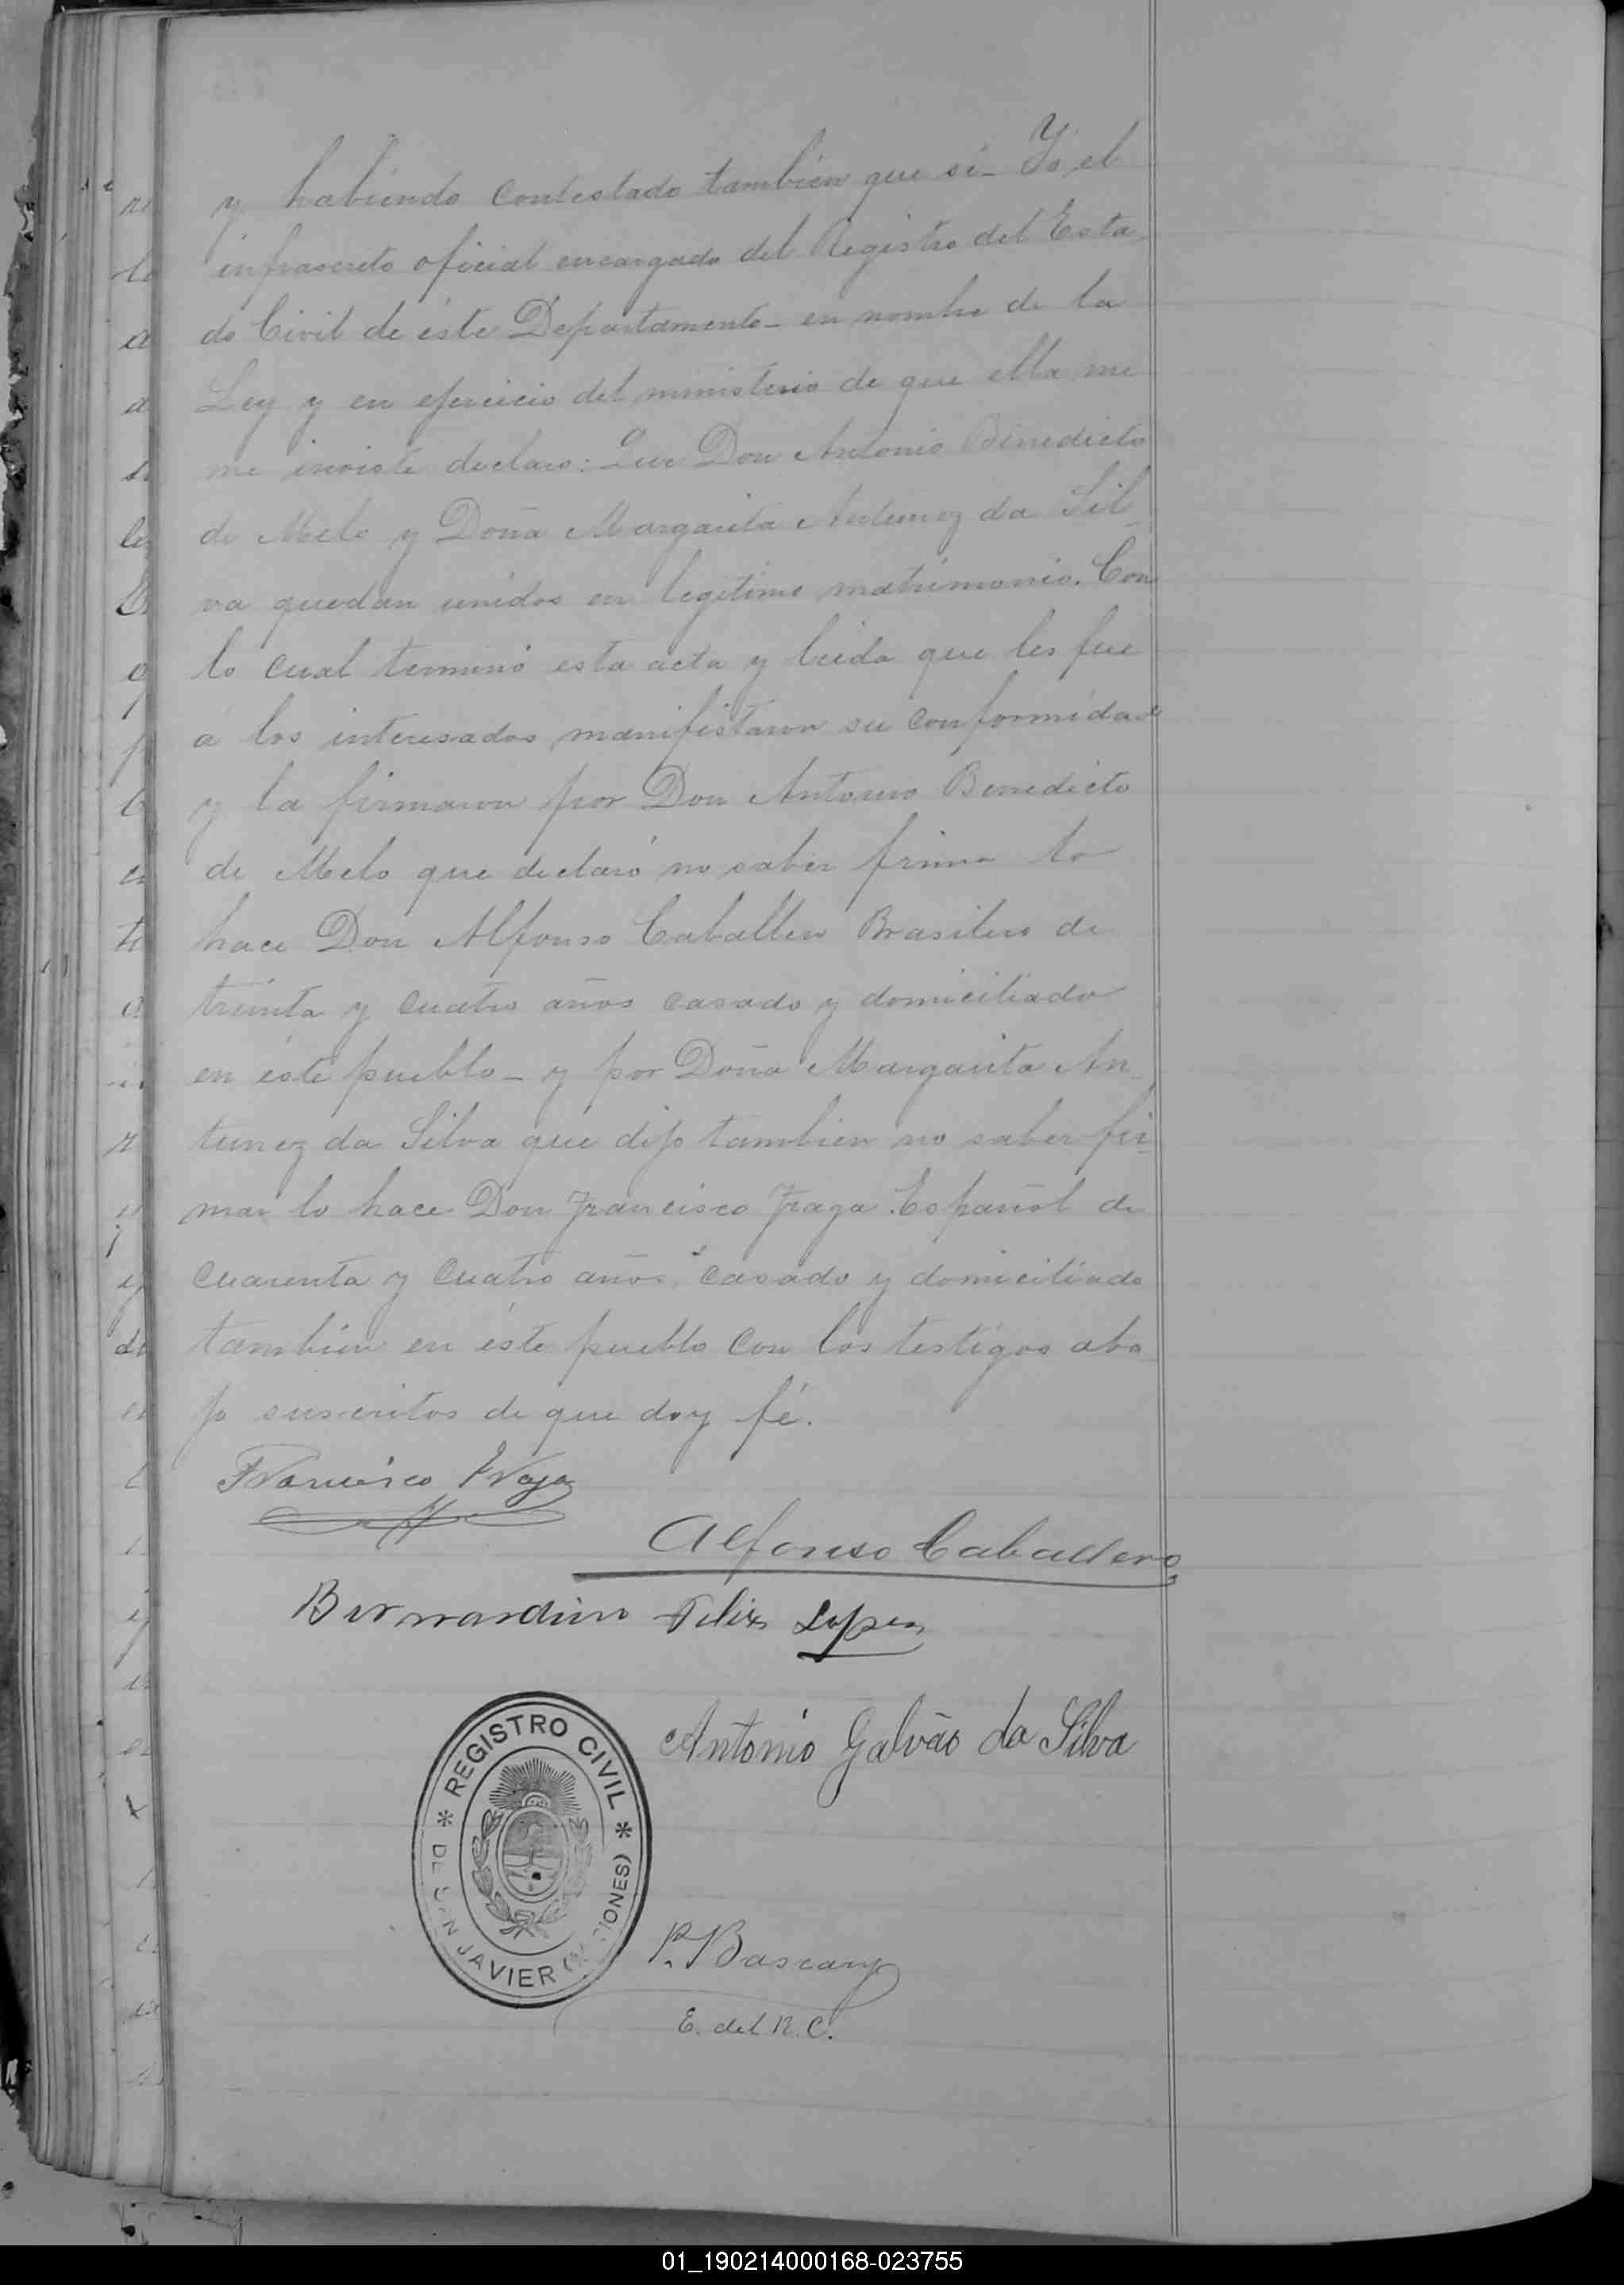 y habiendo contestado tambien que si_ Yo, el
infrascrito oficial encargado del Registro del Esta
do Civil de éste Departamento_ en nombre de la
Ley y en ejercicio del ministerio de que ella me
me inviste declaro: Que Don Antonio Benedicto
de Melo y Doña Margarita Antunez da Sil_
va quedan unidos en legitimo matrimonio. Con
lo cual terminó esta acta y leida que les fue
á los interesados manifestaron su conformidad
y la firmaron por Don Antonio Benedicto
de Melo que declaró no saber firmar lo
hace Don Alfonso Caballero Brasilero de
treinta y cuatro años casado y domiciliado
en éste pueblo_ y por Doña Margarita An_
tunez da Silva que dijo tambien no saber fir_
mar lo hace Don Francisco Fraga Español de
cuarenta y cuatro años, casado y domiciliado
tambien en éste pueblo con los testigos aba_
jo suscritos de que doy fé.
Francisco Fraga
Alfonso Caballero
Bernardino Felix Lopes
Antonio Galvão da Silva
* REGISTRO CIVIL *
DE SAN JAVIER (MISIONES)
P. Bascary
E. del R. C.
01_190214000168-023755